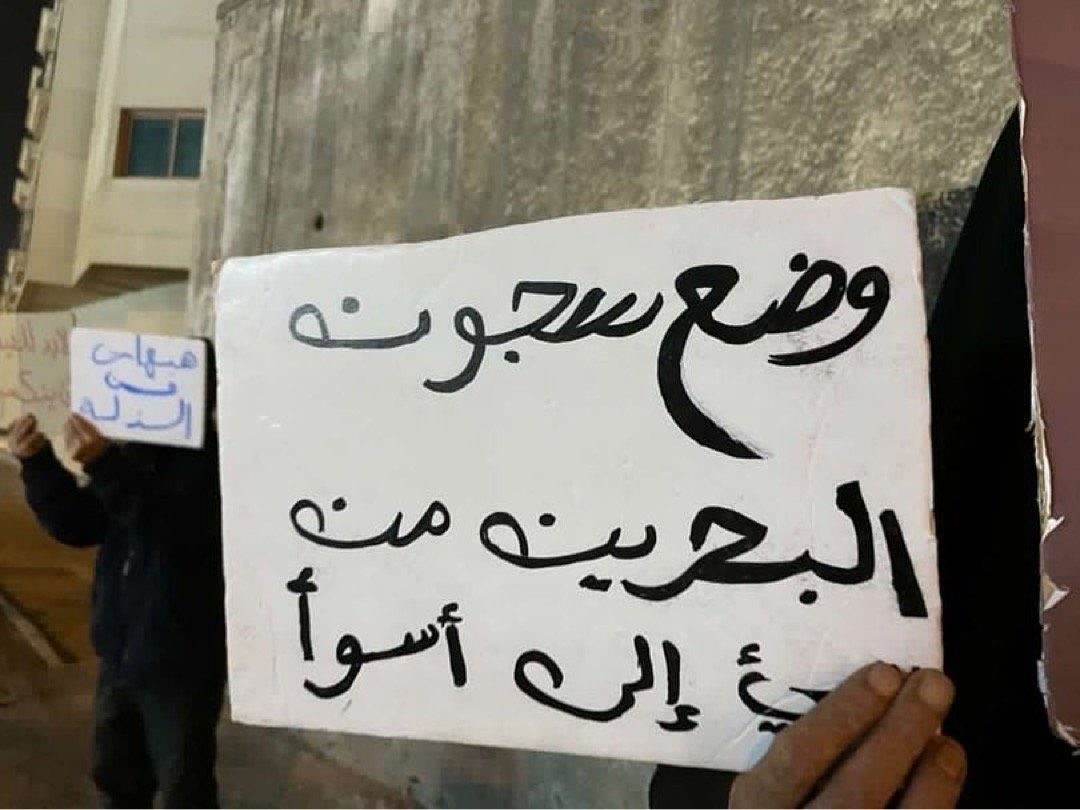 وضع سجون
البحرين من
ئ إلى أسوأ
هيهات
من
الذله